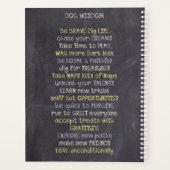 DOG WISDOM
Be BRAVE Big LIFE
chase your DREAMS
Take Time to PLAY
WAG more Bark less
Be LOYAL & Faithful
dig for TREASURES
Take NAPS lots of Naps
Unleash your TALENTS
LEARN new tricks
sniff out OPPORTUNITIES
be quick to FORGIVE
run to GREET everyone
accept treats with
GRATITUDE
EXPLORE new paths
make new FRIENDS
LOVE unconditionally